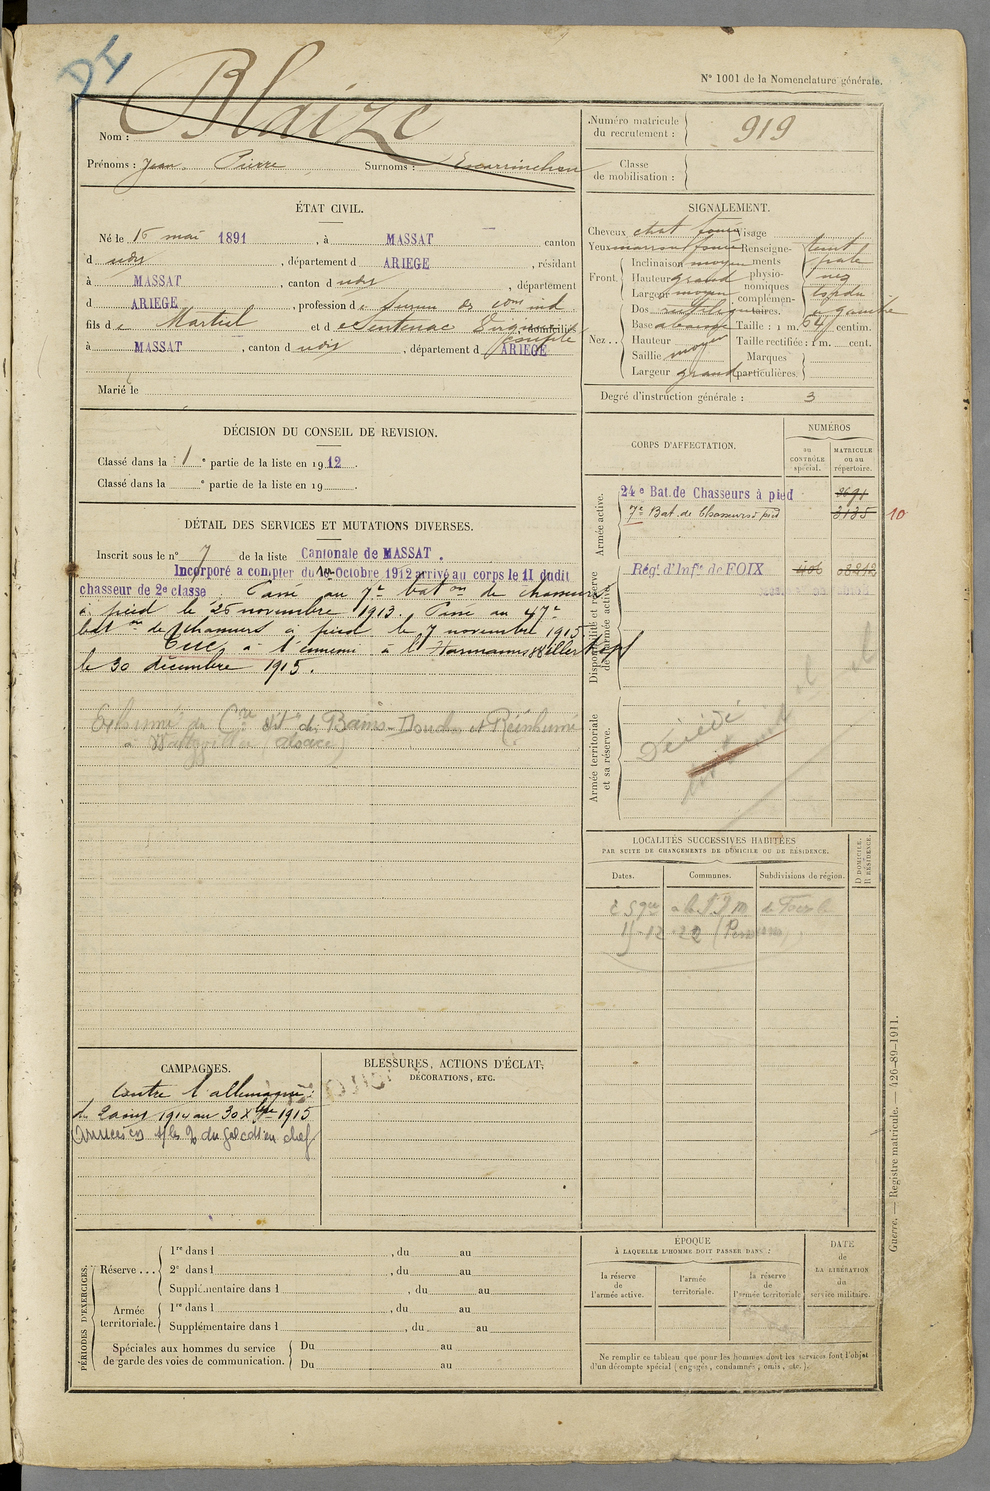 DI
N° 1001 de la Nomenclature générale.
Nom : Blaize
Prénoms : Jean Pierre Surnoms : Escarrinchou
Numéro matricule du recrutement : 919
Classe de mobilisation :
ÉTAT CIVIL.
Né le 16 mai 1891, à MASSAT canton
d udit, département d ARIEGE, résidant
à MASSAT, canton d udit, département
d ARIEGE, profession de
fils de Martial et de Sentenac Virginie domiciliés
à MASSAT, canton d udit, département d ARIEGE
Marié le
SIGNALEMENT.
Cheveux chat foncé Visage
Yeux marron foncé Renseignements physionomiques complémentaires.
Front. Inclinaison moyen
Hauteur grand
Largeur moyen
Nez... Dos rectiligne
Base abaissé Taille : 1 m. 64 centim.
Hauteur Taille rectifiée : 1 m. cent.
Saillie moyen Marques particulières:
Largeur grand
teint
nez
à gauche
Degré d'instruction générale : 3
DÉCISION DU CONSEIL DE REVISION.
Classé dans la 1e partie de la liste en 1912.
Classé dans la e partie de la liste en 19 .
DÉTAIL DES SERVICES ET MUTATIONS DIVERSES.
Inscrit sous le n° 7 de la liste Cantonale de MASSAT.
Incorporé a compter du 1er Octobre 1912 arrivé au corps le 11 dudit
chasseur de 2e classe. Passé au 7e batons de chasseurs
à pied le 25 novembre 1913. Passé au 47e
baton de chasseurs à pied le 7 novembre 1915.
Tué à l'ennemi à l'Harmannswillerkopf
le 30 décembre 1915.
Exhumé du Cre mil. des Bains-Douches et Réinhumé
à Wattwiller (Alsace)
CORPS D'AFFECTATION.
NUMÉROS
au CONTRÔLE spécial.
MATRICULE ou au répertoire.
Armée active.
24e Bat. de Chasseurs à pied 3691
7e Bat. de Chasseurs à pied 3135 10
Disponibilité et réserve de l'armée active.
Régt d'Infie de FOIX 08212
Armée territoriale et sa réserve.
Décédé
LOCALITÉS SUCCESSIVES HABITÉES
PAR SUITE DE CHANGEMENTS DE DOMICILE OU DE RÉSIDENCE.
D DOMICILE. R RÉSIDENCE.
Dates. Communes. Subdivisions de région.
de Foix le
15-12-22 (Pensions)
CAMPAGNES.
Contre l'allemagne:
du 2 aout 1914 au 30 Xbre 1915
BLESSURES, ACTIONS D'ÉCLAT,
DÉCORATIONS, ETC.
PÉRIODES D'EXERCICES.
Réserve... 1re dans l , du au
2e dans l , du au
Supplémentaire dans l , du au
Armée territoriale. 1re dans l , du au
Supplémentaire dans l , du au
Spéciales aux hommes du service de garde des voies de communication. Du au
Du au
ÉPOQUE
À LAQUELLE L'HOMME DOIT PASSER DANS :
la réserve de l'armée active.
l'armée territoriale.
la réserve de l'armée territoriale
DATE de LA LIBÉRATION du service militaire.
Ne remplir ce tableau que pour les hommes dont les services font l'objet
d'un décompte spécial (engagés, condamnés, omis, etc.).
Guerre. — Registre matricule. — 426-89-1911.